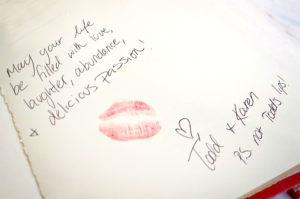 May your life
be filled with love,
laughter, abundance,
& delicious passion!
♡
Todd & Karen
PS. not Todd's lips!